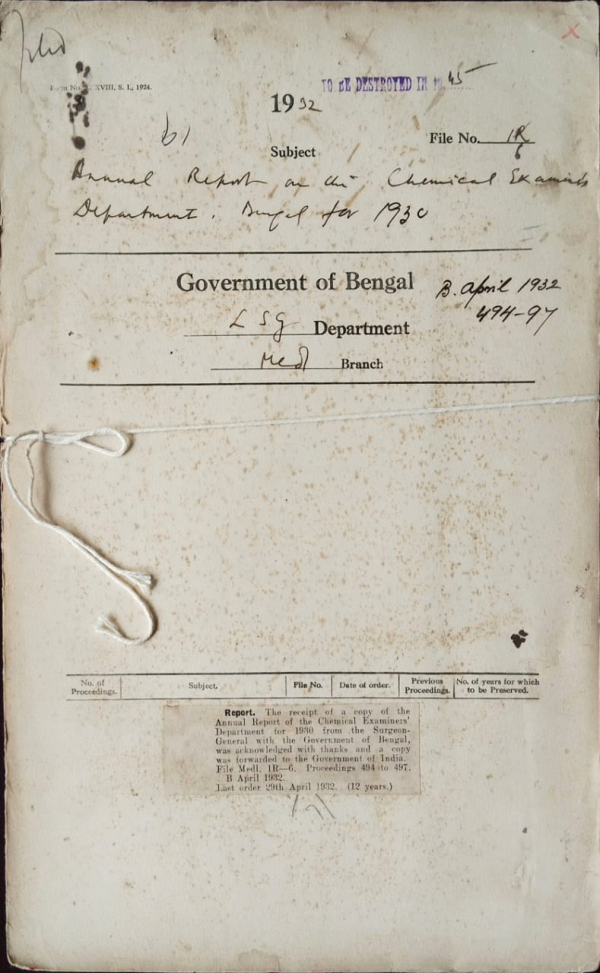 XVIII, S. I., 1924.
TO BE DESTROYED IN 45
1932
File No. 1R/6
Subject
Annual Report on the Chemical Examiners
Department, Bengal for 1930
Government of Bengal
B. April 1932
494-97
LSG Department
Medl Branch
No. of Proceedings. Subject. File No. Date of order. Previous Proceedings. No. of years for which to be Preserved.
Report. The receipt of a copy of the
Annual Report of the Chemical Examiners'
Department for 1930 from the Surgeon-
General with the Government of Bengal,
was acknowledged with thanks and a copy
was forwarded to the Government of India.
File Medl. 1R—6. Proceedings 494 to 497.
B April 1932.
Last order 29th April 1932. (12 years.)